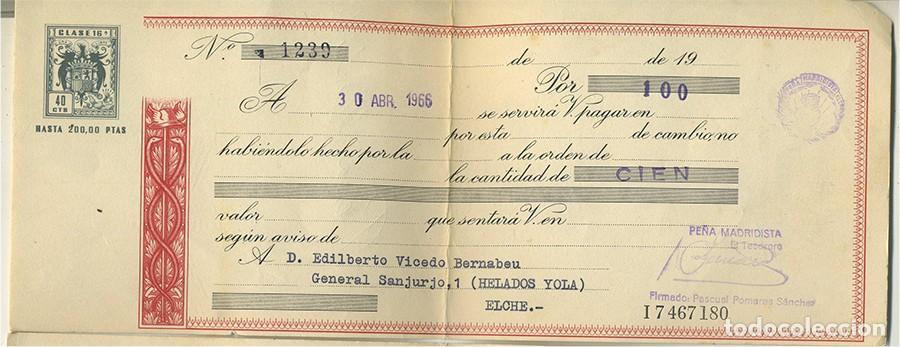 CLASE 16ª
40
CTS
HASTA 200,00 PTAS
N.º 1239
de de 19
Por 100
A 30 ABR. 1966 se servirá V. pagar en
por esta de cambio, no
habiéndolo hecho por la a la orden de
la cantidad de CIEN
valor que sentará V. en
según aviso de
PEÑA MADRIDISTA
El Tesorero
A D. Edilberto Vicedo Bernabeu
General Sanjurjo,1 (HELADOS YOLA)
ELCHE.-
Firmado: Pascual Pomares Sánchez
I 7467180
todocoleccion